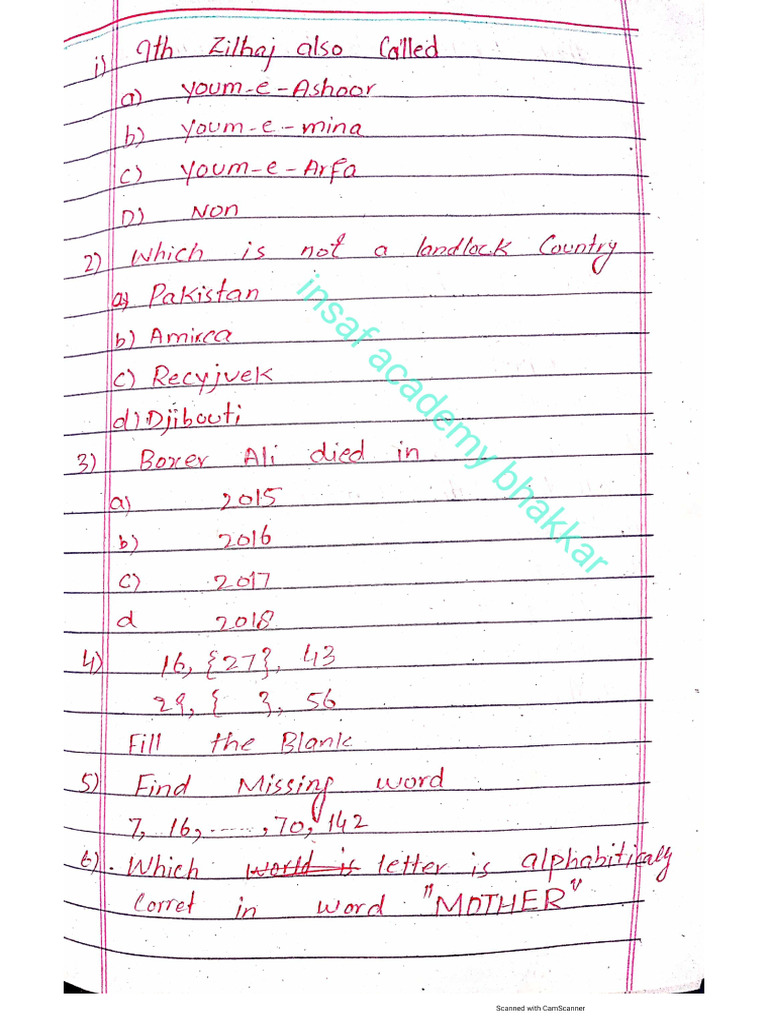 i) 9th Zilhaj also Called
a) youm-e-Ashoor
b) youm-e-mina
c) youm-e-Arfa
D) Non
2) which is not a landlock Country
a) Pakistan
b) Amirca
c) Recyjvek
d) Djibouti
3) Boxer Ali died in
a) 2015
b) 2016
C) 2017
d 2018
4) 16, {27}, 43
29, { }, 56
Fill the Blank
5) Find Missing word
7, 16, ......, 70, 142
6). Which world is letter is alphabitically
Corret in word "MOTHER"
insaf academy bhakkar
Scanned with CamScanner